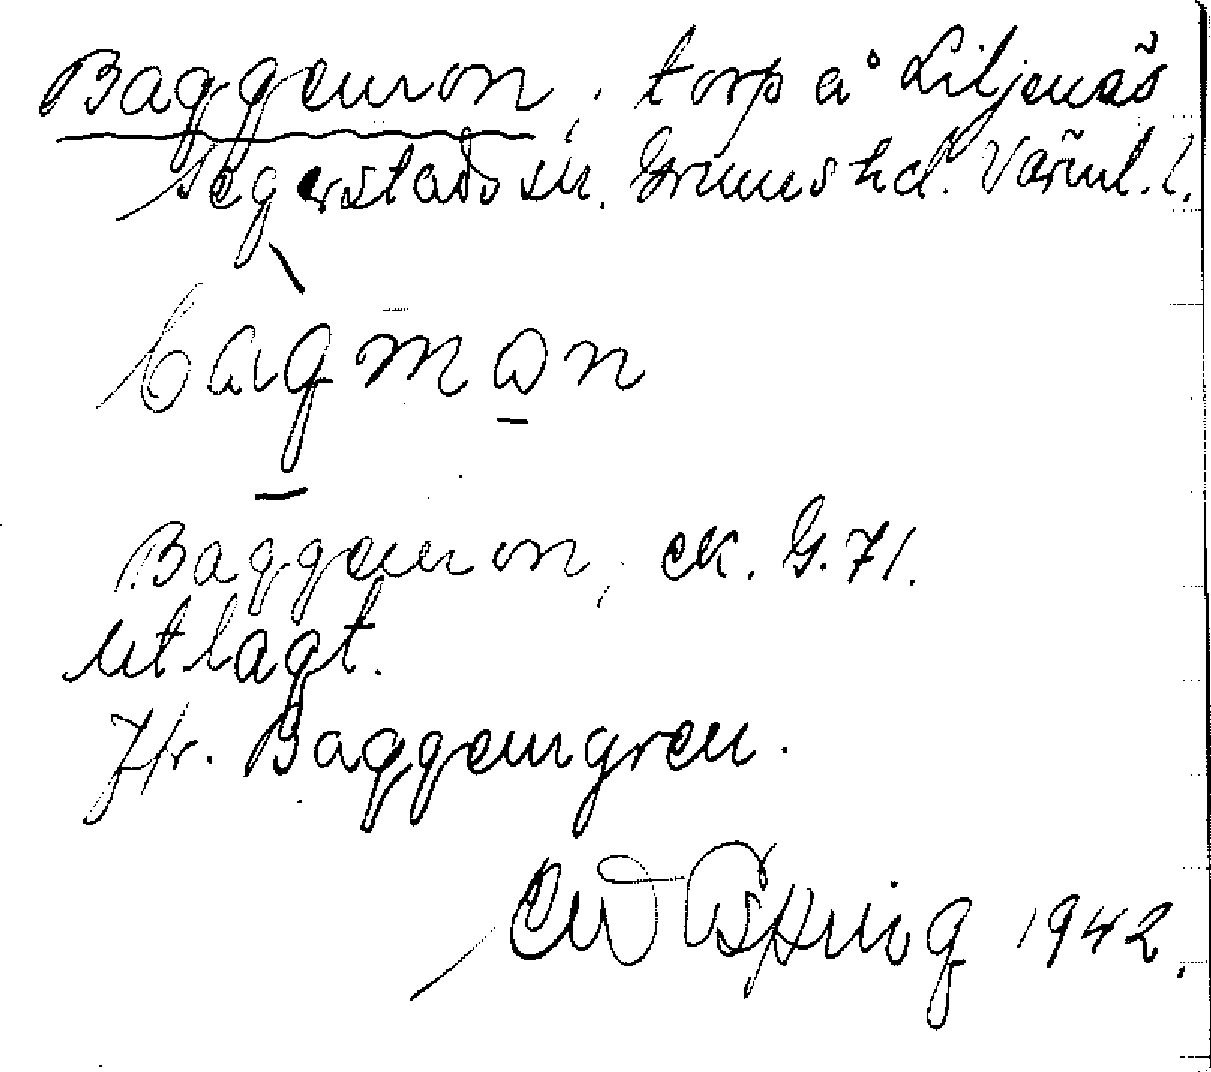 Baggemon, torp å Liljenäs
Segerstads sn. Grums hd. Värml. l.
bagmon
Baggemon, ek. G. 71.
Utlagt.
Jfr. Baggemyren.
1942.